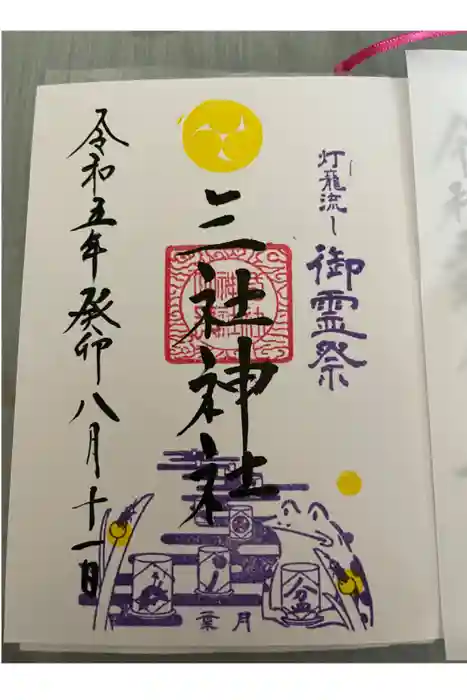 灯籠流し
御霊祭
三社神社
令和五年癸卯八月十一日
葉月